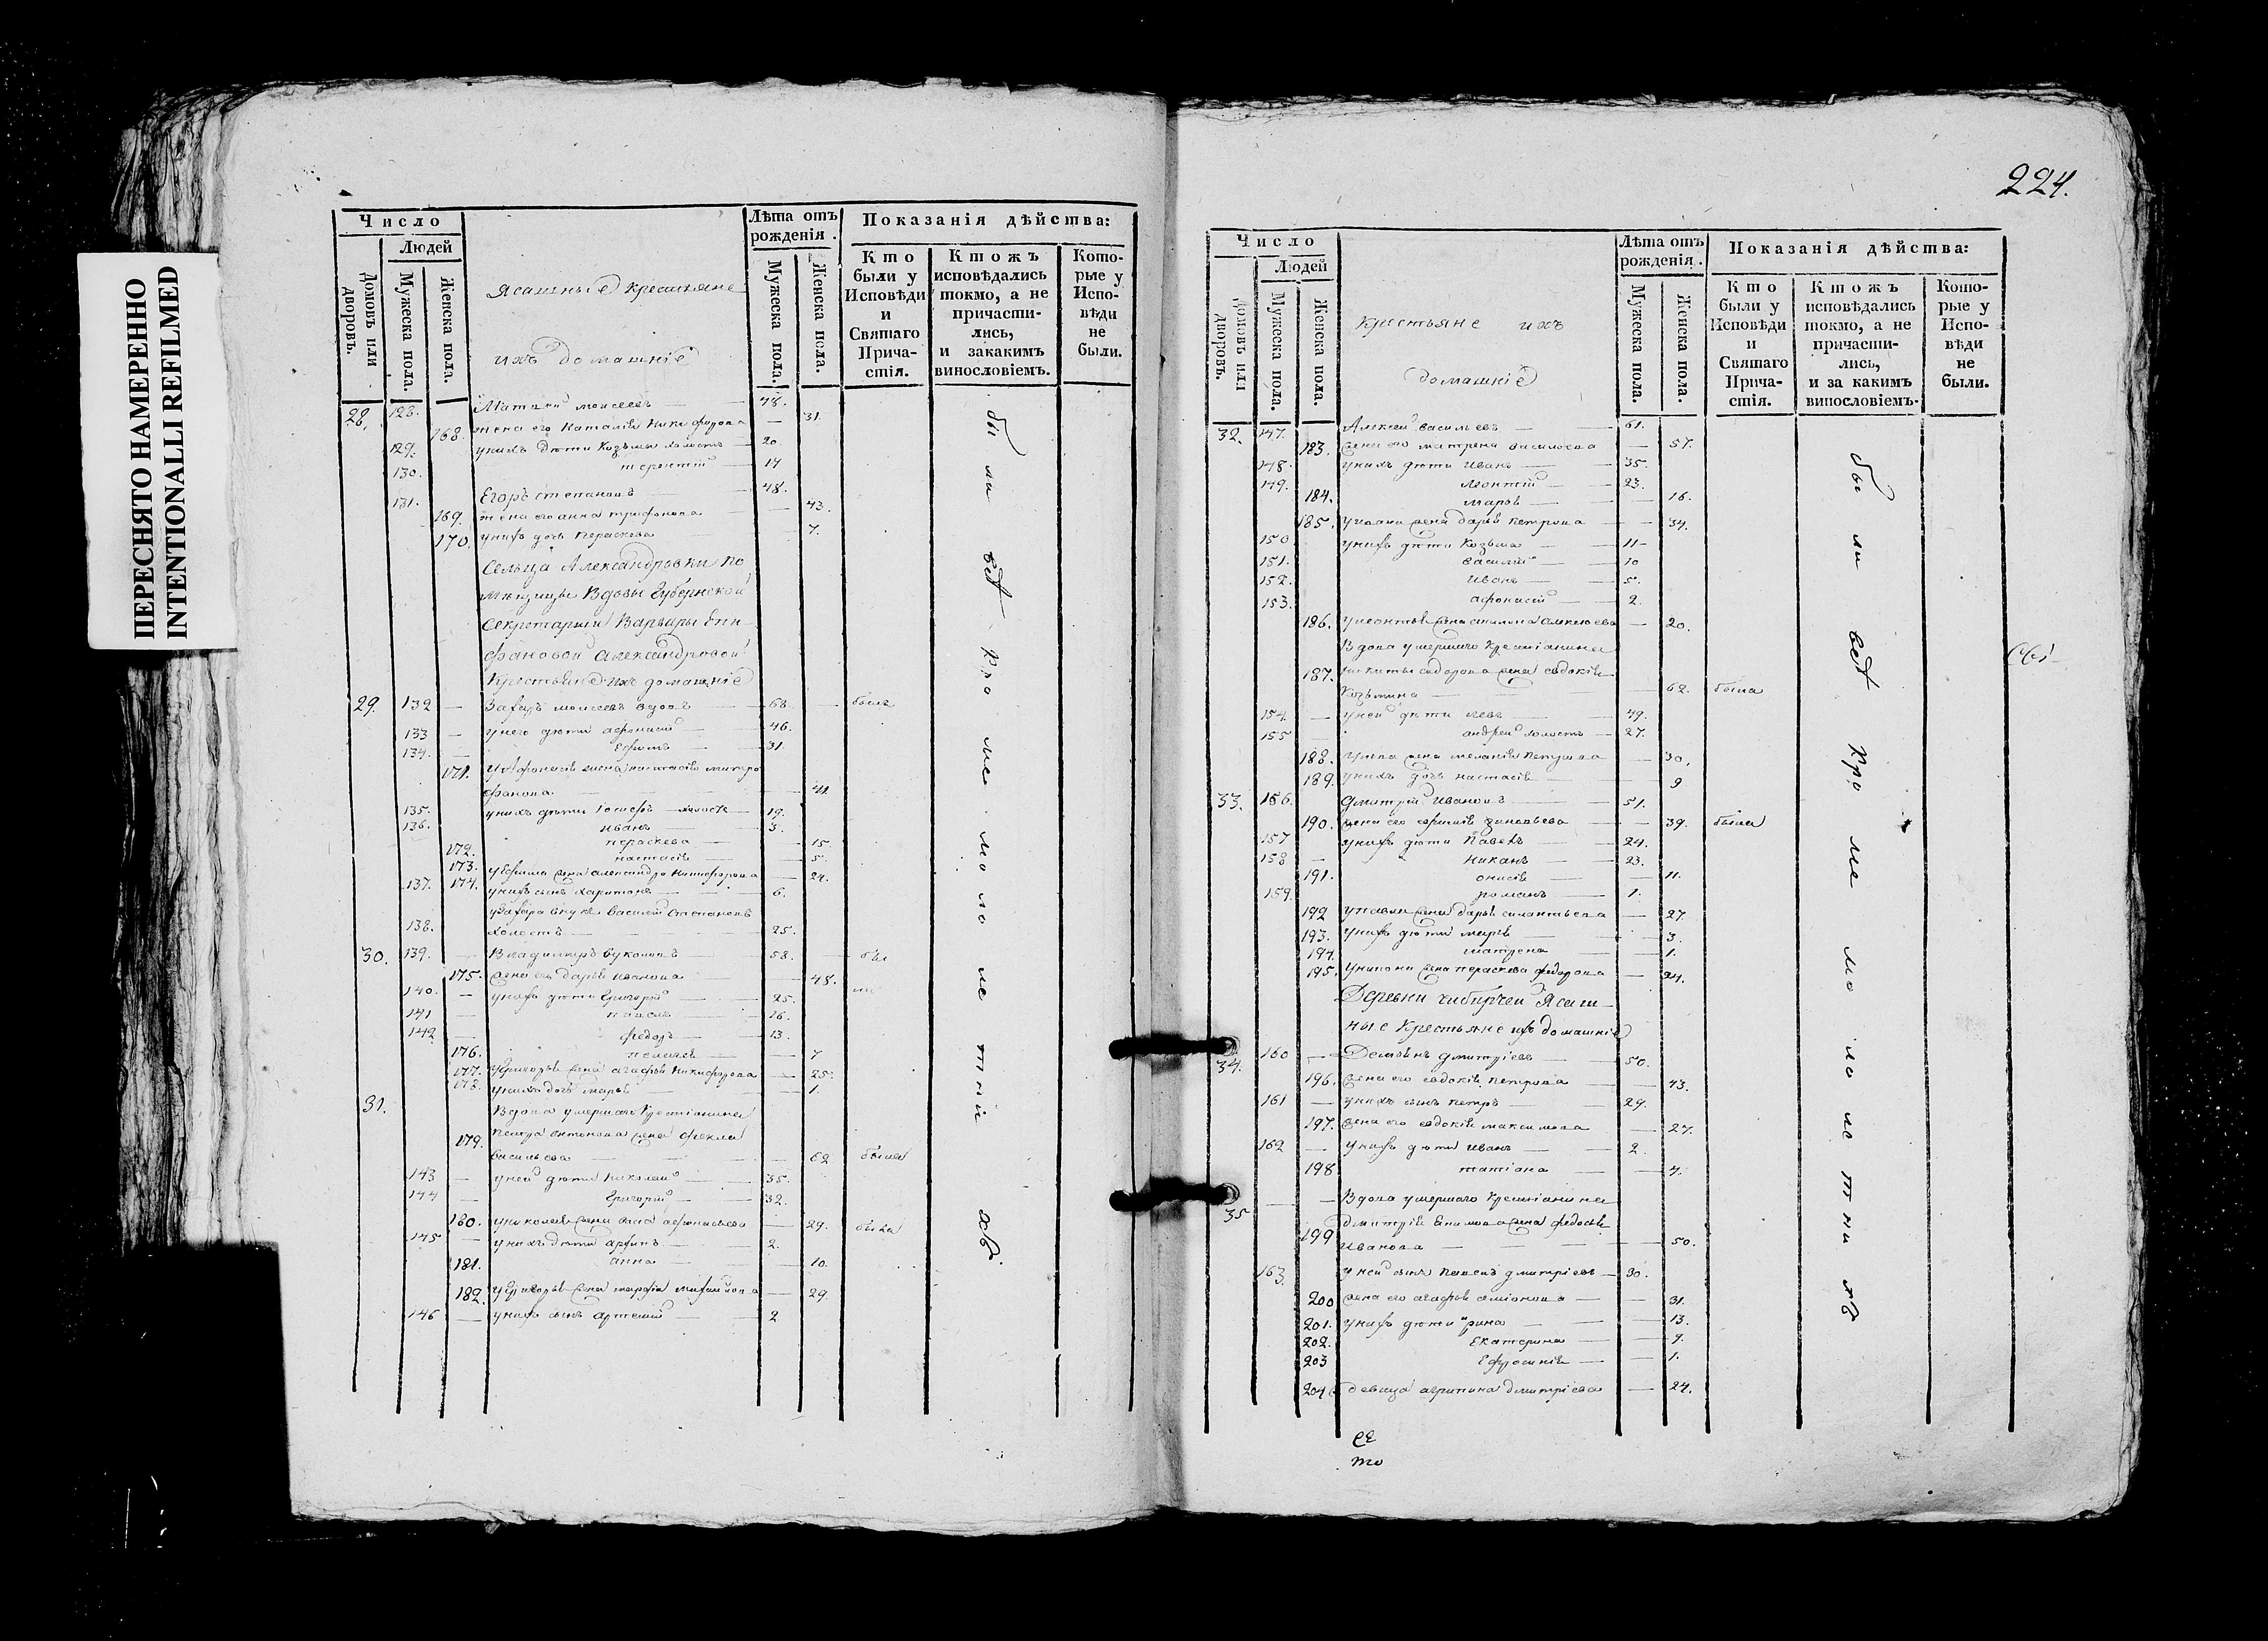 ПЕРЕСНЯТО НАМЕРЕННО
INTENTIONALLI REFILMED
Число
Людей
Домовъ или дворовъ.
Мужеска пола.
Женска пола.
Ясашные крестьяне
ихъ домашніе
Лѣта отъ рожденія.
Мужеска пола.
Женска пола.
Показанія дѣйства:
Кто были у Исповѣди и Святаго Прича-стія.
Ктожъ исповѣдались токмо, а не причасти-лись, и закакимъ винословіемъ.
Кото-рые у Испо-вѣди не были.
28. 128. моисеевъ 48.
168. жена его Наталія Никифорова — 31.
129. унихъ дѣти Козьма холостъ — 20.
130. терентій — 14
131. Егоръ степановъ — 48.
169. жена его анна трифонова — 43.
170. унихъ дочь пераскева — 7.
Сельца Александровки по
мѣщицы Вдовы Губернской
Секретарши Варвары Епи
фановой Александровой
Крестьяне ихъ домашніе
29. 132 — Захаръ моисеевъ вдовъ — 68. — былъ
133 — унего дѣти афонасий — 46.
134. — Ефимъ — 31.
171. У Афонасія жена настасія митро
фанова — 41
135. унихъ дѣти Іосифъ холостъ — 19.
136. иванъ — 3.
172. пераскева — 15
173. настасія — 5.
174. уефима жена александра Никифорова — 24.
137. унихъ сынъ харитонъ — 6.
узахара внукъ василей Степановъ
138. холостъ — 25.
30. 139. — Владимиръ вуколовъ — 58. — был
175. жена его дарья иванова — 48.
140. — унихъ дѣти Григорій — 25.
141 — павелъ — 16.
142 — федоръ — 13.
176. пелагея — 7
177. уГригорья жена агафья Никифорова — 25.
178. унихъ дочь марья — 1.
31. Вдова умершаго Крестіанина
179. петра антонова жена фекла
васильева — 62 была
143 — уней дѣти Николай — 35.
144 — Григорій — 32.
180. униколая жена анна афонасьева — 29. была
145 — унихъ дѣти архипъ — 2.
181. анна — 10.
182. уГригорья жена михайлова — 29.
146 — унихъ сынъ артемій — 2
бы ли всѣ кро ме ма ло ле тни хъ
224.
Число
Людей
Домовъ или дворовъ.
Мужеска пола.
Женска пола.
крестьяне ихъ
домашніе
Лѣта отъ рожденія.
Мужеска пола.
Женска пола.
Показанія дѣйства:
Кто были у Исповѣди и Святаго Прича-стія.
Ктожъ исповѣдались токмо, а не причасти-лись, и за какимъ винословіемъ.
Кото-рые у Испо-вѣди не были.
32. 147. Алексей васильевъ — 61.
183. жена его матрена василиева — 57.
148. унихъ дѣти иванъ — 35.
149. леонтій — 23.
184. марья — 16.
185. уивана жена дарья петрова — 34.
150 унихъ дѣти Козьма — 11
151. василій — 10
152. иванъ — 5.
153. афонасій — 2.
186. улеонтья жена алексеева — 20.
Вдова умершаго Крестіанина
187. никиты сидорова жена евдокія
Козьмина — 62. была
154. — уней дѣти левъ — 49.
155 — андрей холостъ — 27.
188. ульва жена меланія петрова — 30.
189. унихъ дочь настасія — 9
33. 156. Дмитрій Ивановъ — 51.
190. жена его зиновьева — 39. была
157 унихъ дѣти Павелъ — 24.
158 — никанъ — 23.
191. онисія — 11.
159. романъ — 1.
192 упавла жена дарья силантьева — 27.
193. унихъ дѣти марья — 3.
194. матрена — 1.
195. уникона жена пераскева федорова — 24.
Деревни чибирчей Ясаш
ные Крестьяне ихъ домашніе
34. 160 — Дементъ дмитріевъ — 50.
196. жена его евдокія петрова — 43.
161 — унихъ сынъ петръ — 29.
197. жена его евдокія максимова — 27.
162 — унихъ дѣти иванъ — 2.
198 татіана — 4.
35 — — Вдова умершаго Крестіанина
199 дмитрія жена федосья
иванова — 50.
163. уней сынъ павелъ дмитріевъ — 30.
200 жена его агафья симіонова — 31.
201. унихъ дѣти ирина — 13.
202. Екатерина — 9.
203 Ефросинія — 1.
204 девица агрипина дмитріева — 24.
бы ли всѣ кро ме ма ло ле тни хъ